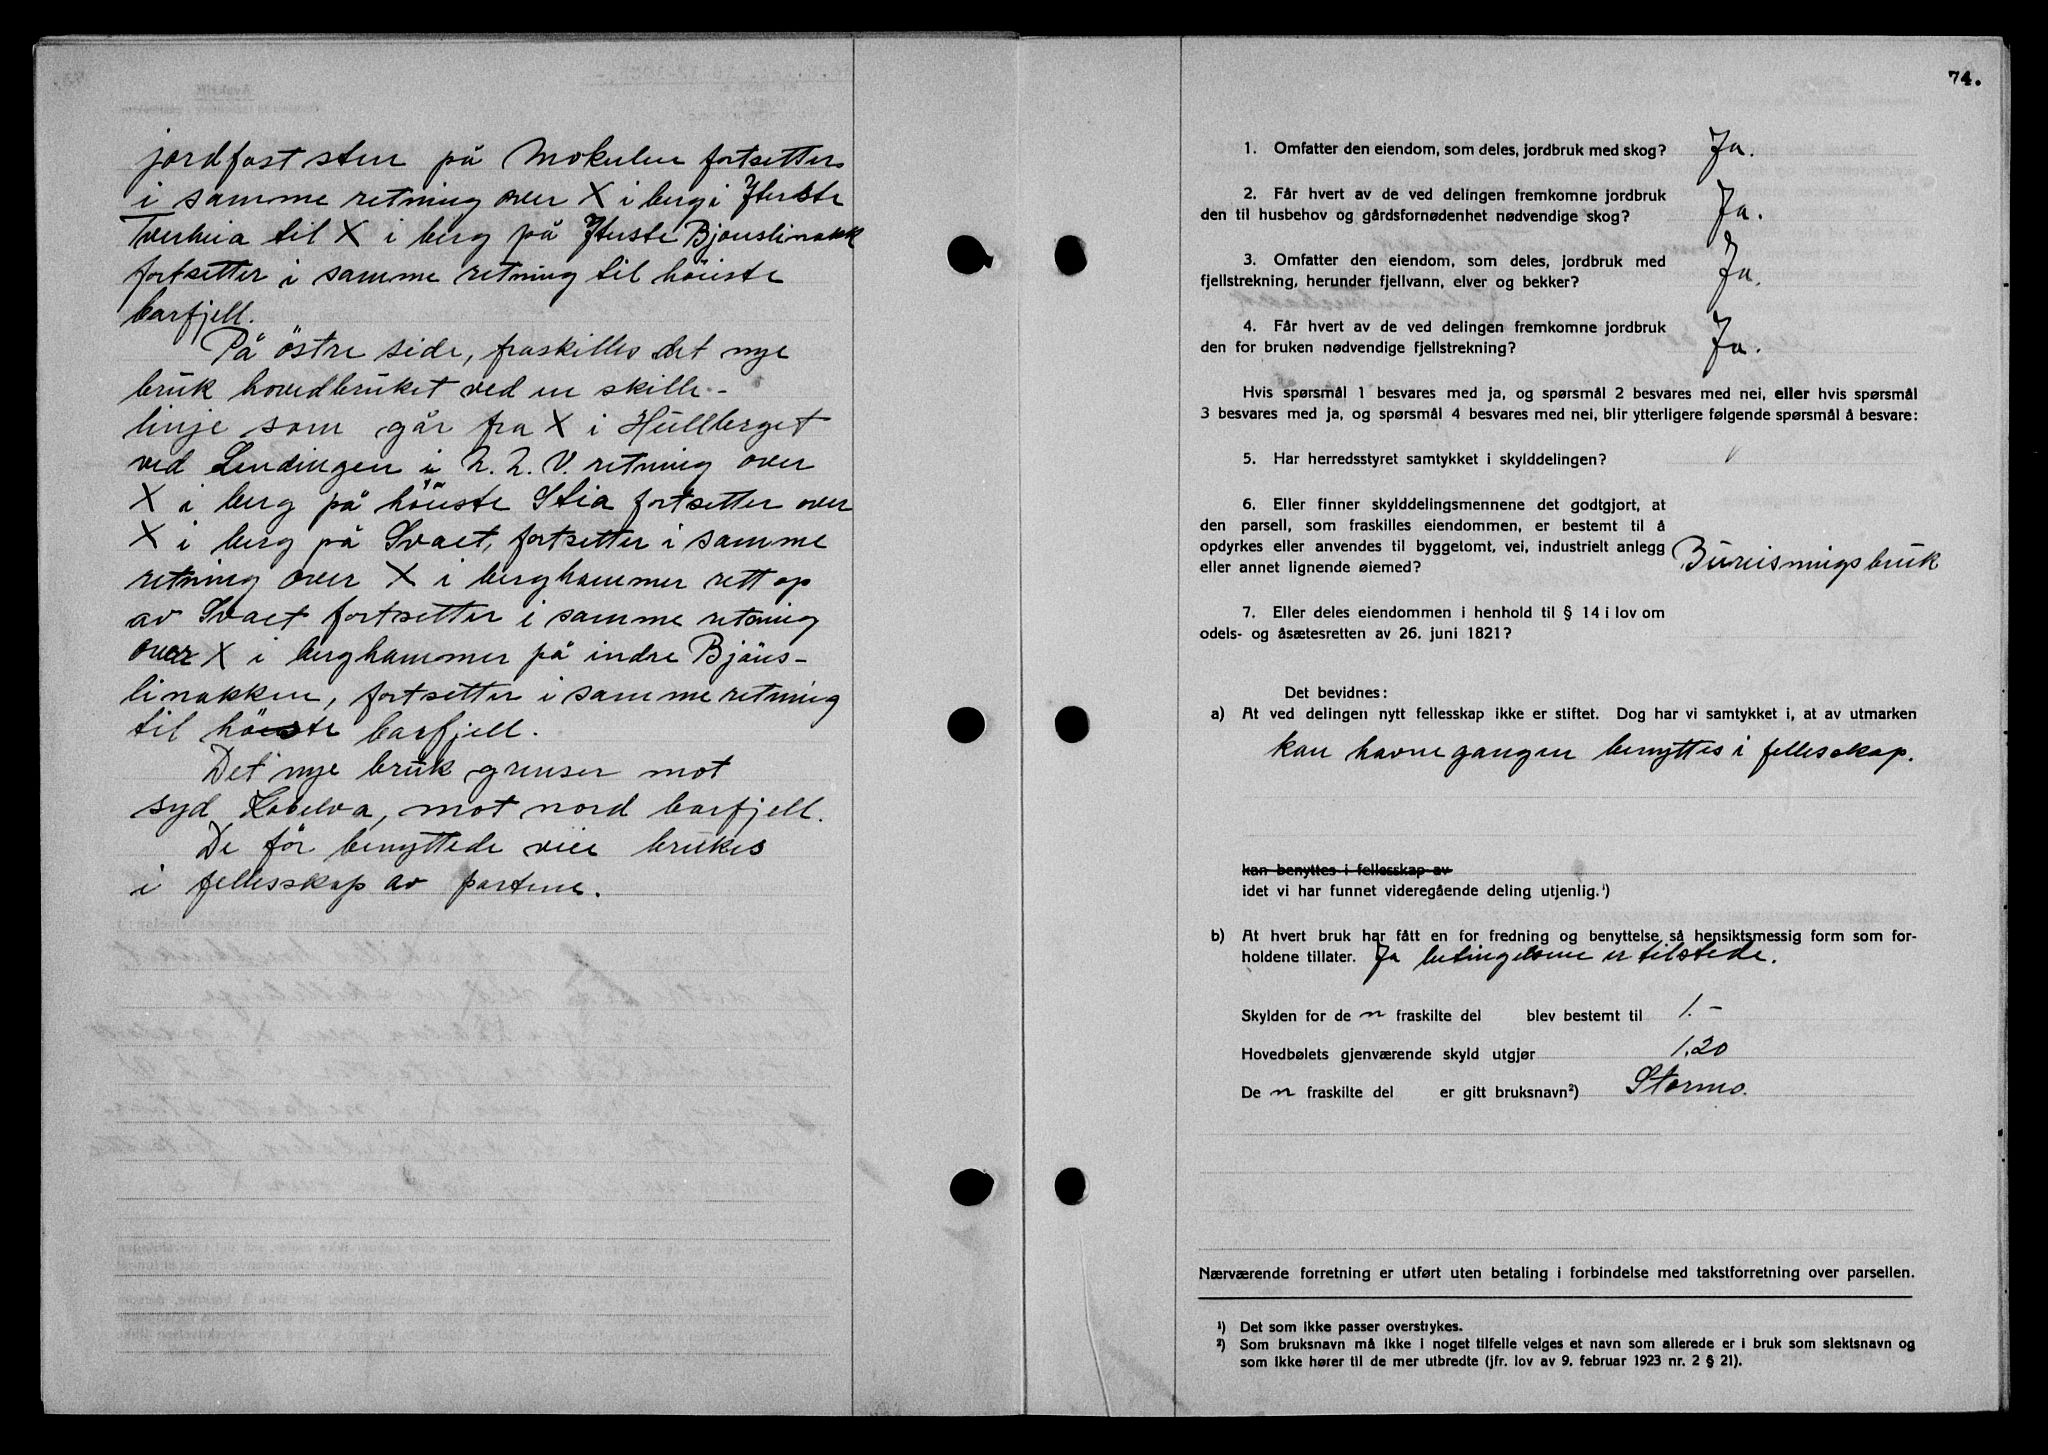 jordfast sten på Mokulen fortsetter
i samme retning over X i berg i Yterste
Tverheia til X i berg på Yterste Bjønslinakk
fortsetter i samme retning til höieste
barfjell.
På östre side, fraskilles det nye
bruk hovedbruket ved en skille-
linje som går fra X i Hullberget
ved Lendingen i N. N. V. retning over
X i berg på höieste Stia fortsetter over
X i berg på Svaet, fortsetter i samme
retning over X i berghammer rett op
av Svaet fortsetter i samme retning
over X i berghammer på indre Bjöns-
linakken, fortsetter i samme retning
til höieste barfjell.
Det nye bruk grenser mot
syd Kobelva, mot nord barfjell.
De för benyttede veie brukes
i fellesskap av partene.
74.
1. Omfatter den eiendom, som deles, jordbruk med skog? Ja.
2. Får hvert av de ved delingen fremkomne jordbruk
den til husbehov og gårdsfornødenhet nødvendige skog? Ja.
3. Omfatter den eiendom, som deles, jordbruk med
fjellstrekning, herunder fjellvann, elver og bekker? Ja.
4. Får hvert av de ved delingen fremkomne jordbruk
den for bruken nødvendige fjellstrekning? Ja.
Hvis spørsmål 1 besvares med ja, og spørsmål 2 besvares med nei, eller hvis spørsmål
3 besvares med ja, og spørsmål 4 besvares med nei, blir ytterligere følgende spørsmål å besvare:
5. Har herredsstyret samtykket i skylddelingen?
6. Eller finner skylddelingsmennene det godtgjort, at
den parsell, som fraskilles eiendommen, er bestemt til å
opdyrkes eller anvendes til byggetomt, vei, industrielt anlegg
eller annet lignende øiemed? Bureisningsbruk
7. Eller deles eiendommen i henhold til § 14 i lov om
odels- og åsætesretten av 26. juni 1821?
Det bevidnes:
a) At ved delingen nytt fellesskap ikke er stiftet. Dog har vi samtykket i, at av utmarken
kan havnegangen benyttes i fellesskap.
kan benyttes i fellesskap av
idet vi har funnet videregående deling utjenlig.¹)
b) At hvert bruk har fått en for fredning og benyttelse så hensiktsmessig form som for-
holdene tillater. Ja betingelsene er tilstede.
Skylden for de n fraskilte del blev bestemt til 1.-
Hovedbølets gjenværende skyld utgjør 1,20
De n fraskilte del er gitt bruksnavn²) Stormo.
Nærværende forretning er utført uten betaling i forbindelse med takstforretning over parsellen.
¹) Det som ikke passer overstrykes.
²) Som bruksnavn må ikke i noget tilfelle velges et navn som allerede er i bruk som slektsnavn og
som ikke hører til de mer utbredte (jfr. lov av 9. februar 1923 nr. 2 § 21).